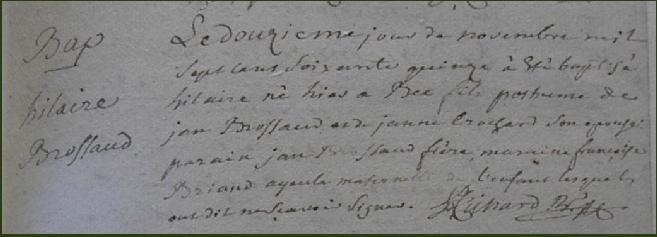 Bap
hilaire
Brossaud
Le douzieme jour de novembre mil
sept cent soixante quinze à été baptisé
hilaire né hier a Bee fils posthume de
jan Brossaud et de janne Crochard son epouse
parain jan Brossaud frère, maraine françoise
Briand ayeule maternelle de l'enfant lesquels
ont dit ne scavoir signer.